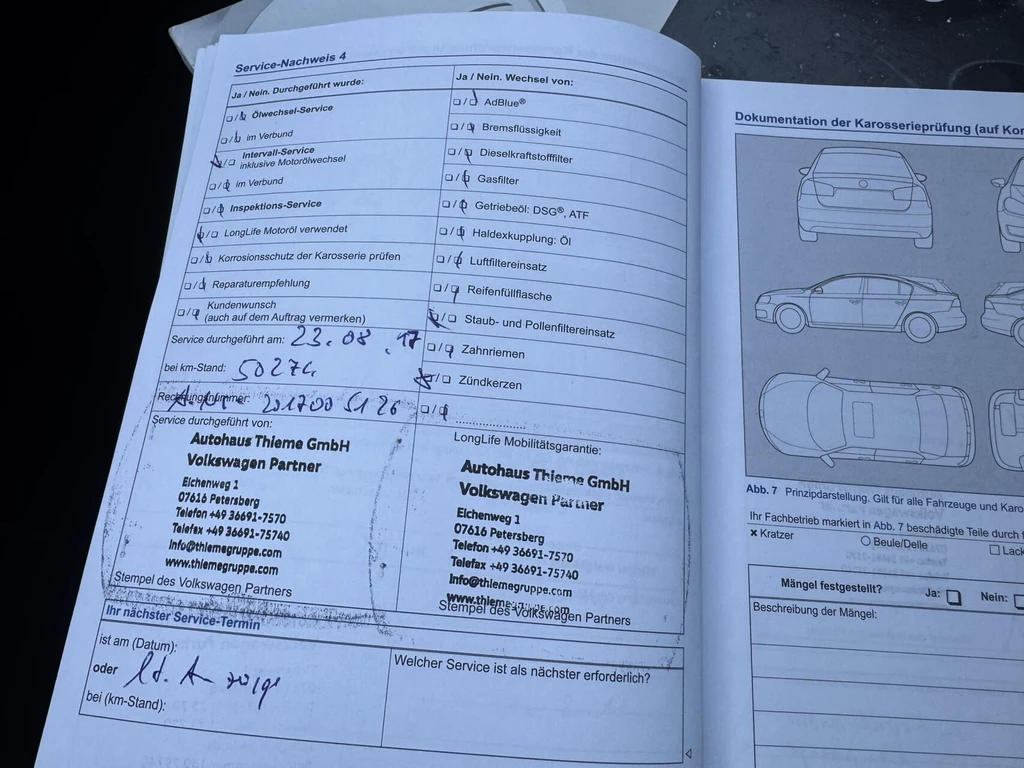 Service-Nachweis 4
Ja / Nein. Durchgeführt wurde:
Ölwechsel-Service
im Verbund
Intervall-Service
inklusive Motorölwechsel
im Verbund
Inspektions-Service
LongLife Motoröl verwendet
Korrosionsschutz der Karosserie prüfen
Reparaturempfehlung
Kundenwunsch
(auch auf dem Auftrag vermerken)
Service durchgeführt am: 23.08.17
bei km-Stand: 50274
Rechnungsnummer: 2017005126
Service durchgeführt von:
Autohaus Thieme GmbH
Volkswagen Partner
Eichenweg 1
07616 Petersberg
Telefon +49 36691-7570
Telefax +49 36691-75740
info@thiemegruppe.com
www.thiemegruppe.com
Stempel des Volkswagen Partners
Ja / Nein. Wechsel von:
AdBlue®
Bremsflüssigkeit
Dieselkraftstofffilter
Gasfilter
Getriebeöl: DSG®, ATF
Haldexkupplung: Öl
Luftfiltereinsatz
Reifenfüllflasche
Staub- und Pollenfiltereinsatz
Zahnriemen
Zündkerzen
LongLife Mobilitätsgarantie:
Autohaus Thieme GmbH
Volkswagen Partner
Eichenweg 1
07616 Petersberg
Telefon +49 36691-7570
Telefax +49 36691-75740
info@thiemegruppe.com
www.thiemegruppe.com
Stempel des Volkswagen Partners
Ihr nächster Service-Termin
ist am (Datum):
oder lt. Anzeige
bei (km-Stand):
Welcher Service ist als nächster erforderlich?
Dokumentation der Karosserieprüfung (auf
Abb. 7 Prinzipdarstellung. Gilt für alle Fahrzeuge und
Ihr Fachbetrieb markiert in Abb. 7 beschädigte Teile durch
× Kratzer
Beule/Delle
Mängel festgestellt?
Ja:
Nein:
Beschreibung der Mängel: